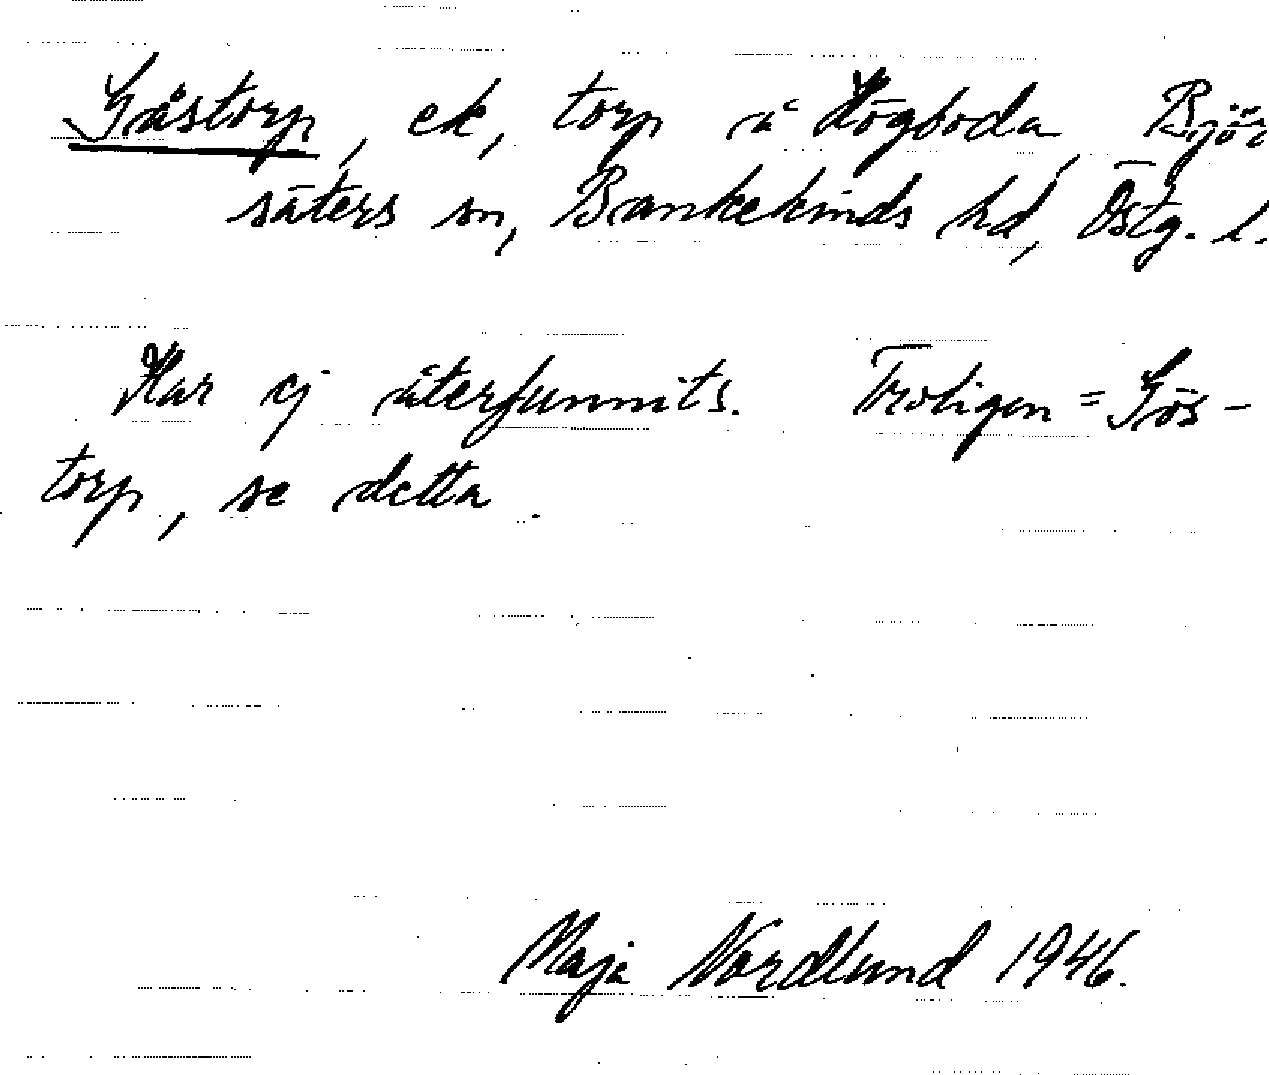 Gåstorp, ek, torp å Högboda, Björ
säters sn, Bankekinds hd, Östg. l.
Har ej återfunnits. Troligen = Gös-
torp, se detta.
Maja Nordlund 1946.